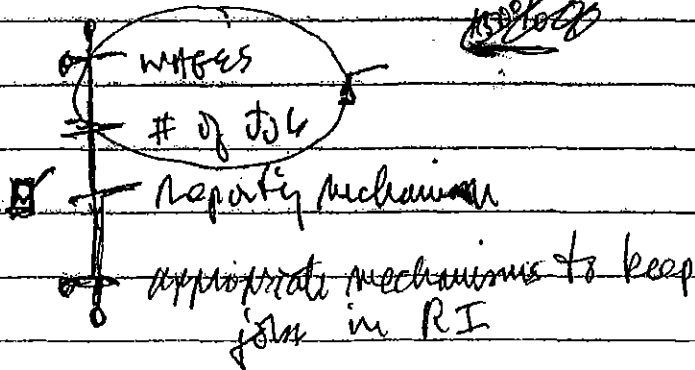 WAGES
# of Jobs
Reporting mechanism
appropriate mechanisms to keep
jobs in RI